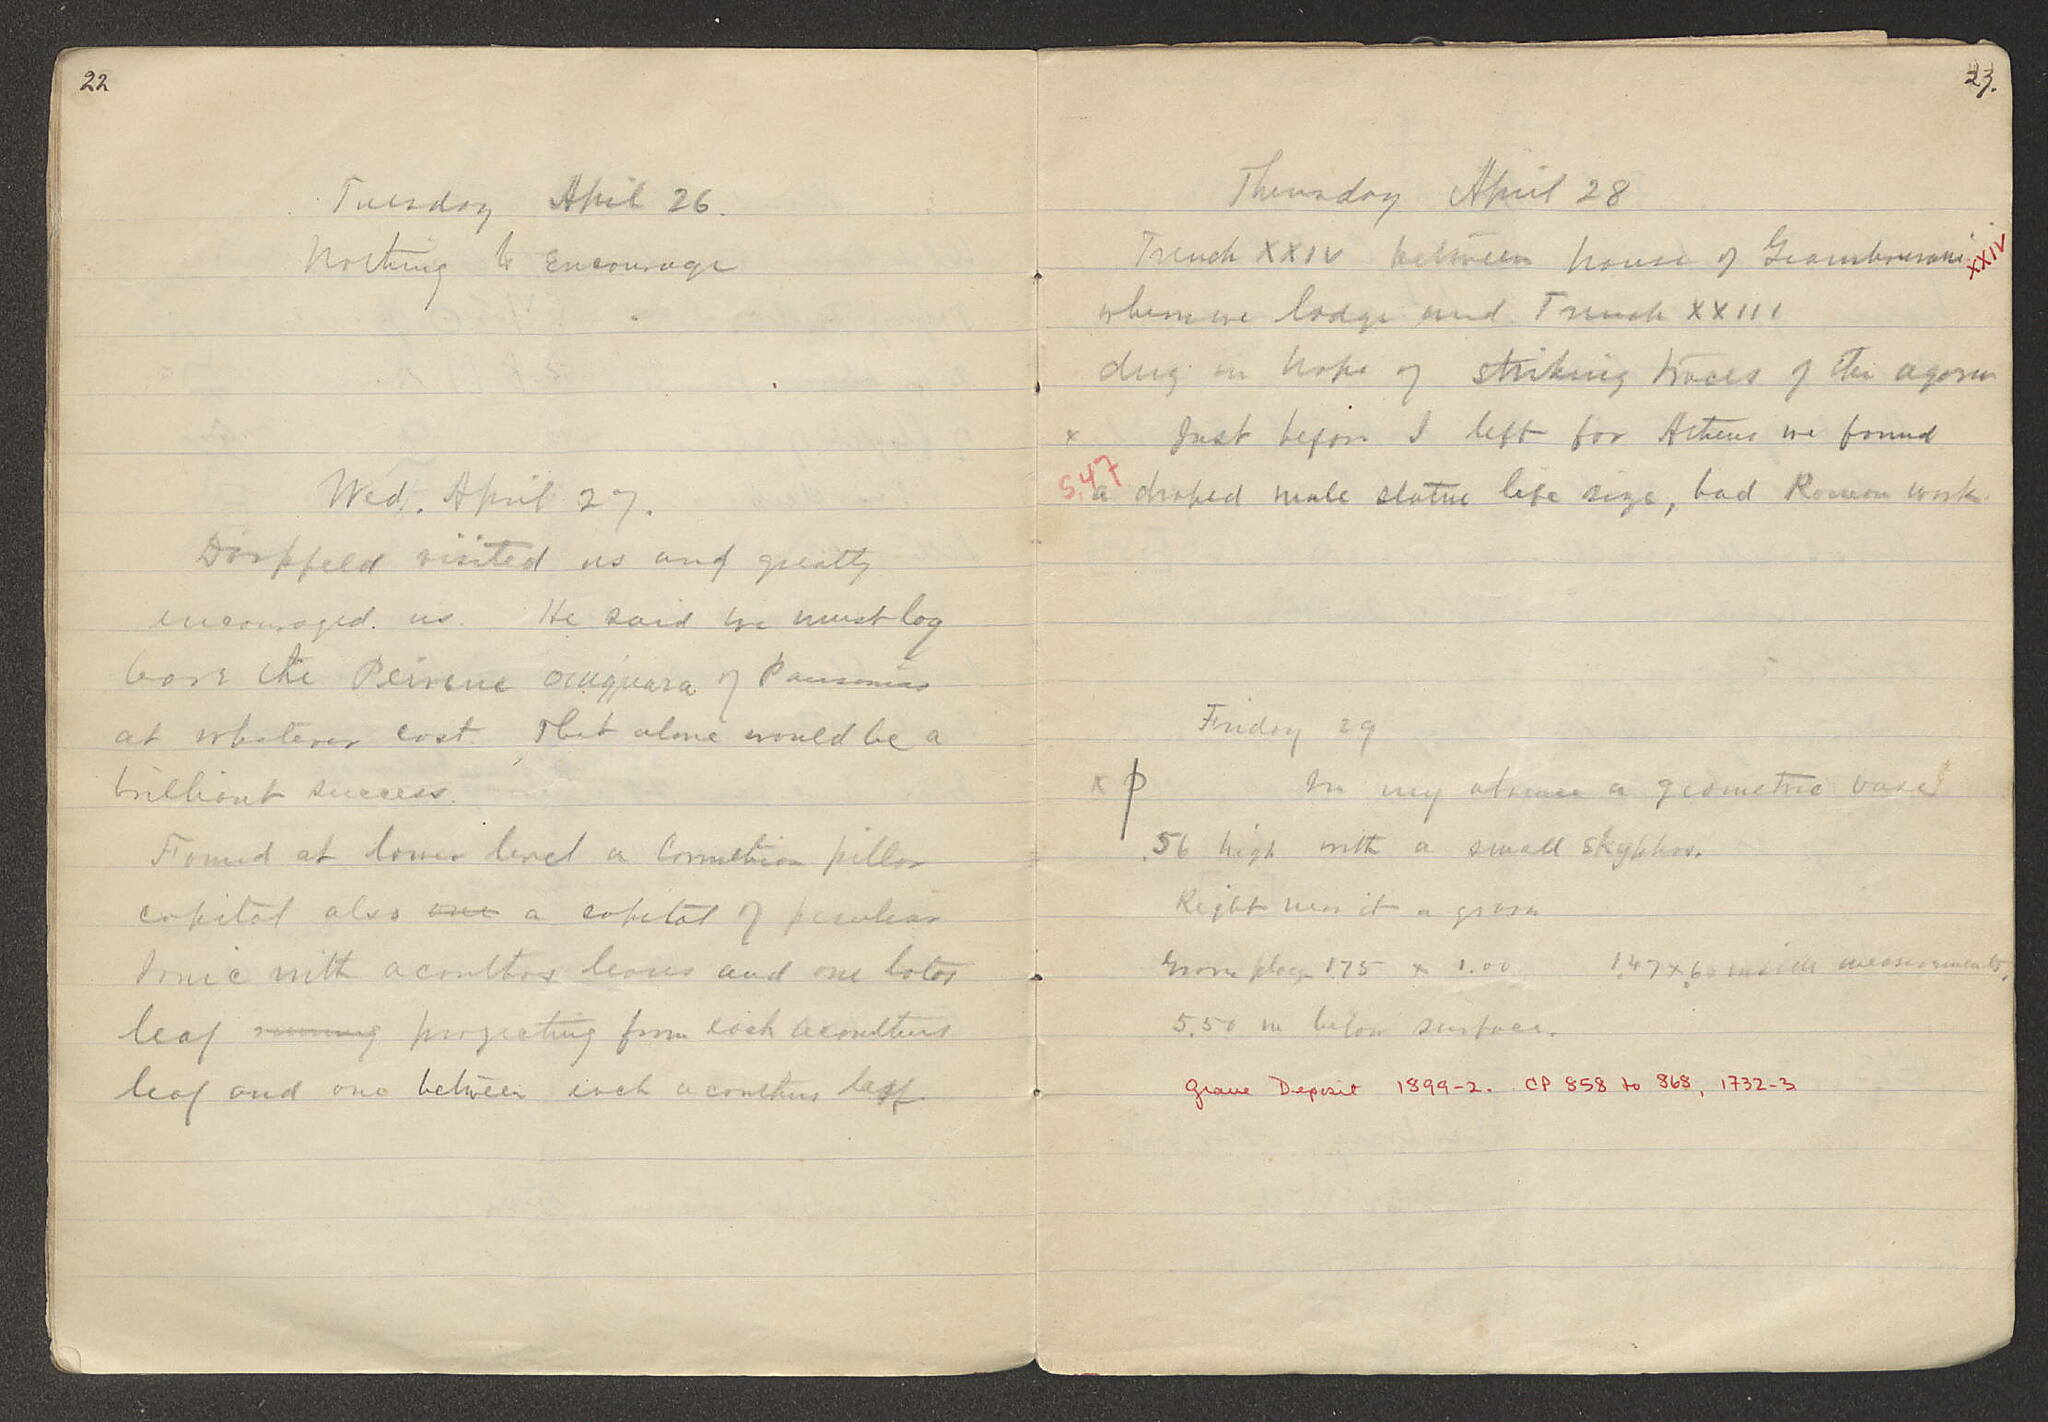 22
Tuesday April 26.
Nothing to encourage
Wed. April 27.
Dörpfeld visited us and greatly
encouraged us. He said we must lay
bare the Peirene of Pausanias
at whatever cost. That alone would be a
brilliant success.
Found at lower level a Corinthian pillar
capital also one a capital of peculiar
Ionic with acanthos leaves and one lotos
leaf running projecting from each acanthus
leaf and one between each acanthus leaf.
23.
Thursday April 28
Trench XXIV between house of
XXIV
where we lodge and Trench XXIII
dug in hope of striking traces of the agora
x Just before I left for Athens we found
S.47
a draped male statue life size, bad Roman work.
Friday 29
x P In my absence a geometric vase
.56 high with a small skyphos.
Right near it a grave
Grave 1.75 x 1.00 1.47 x .60 inside measurements.
5.50 m below surface.
Grave Deposit 1899-2. CP 858 to 868, 1732-3